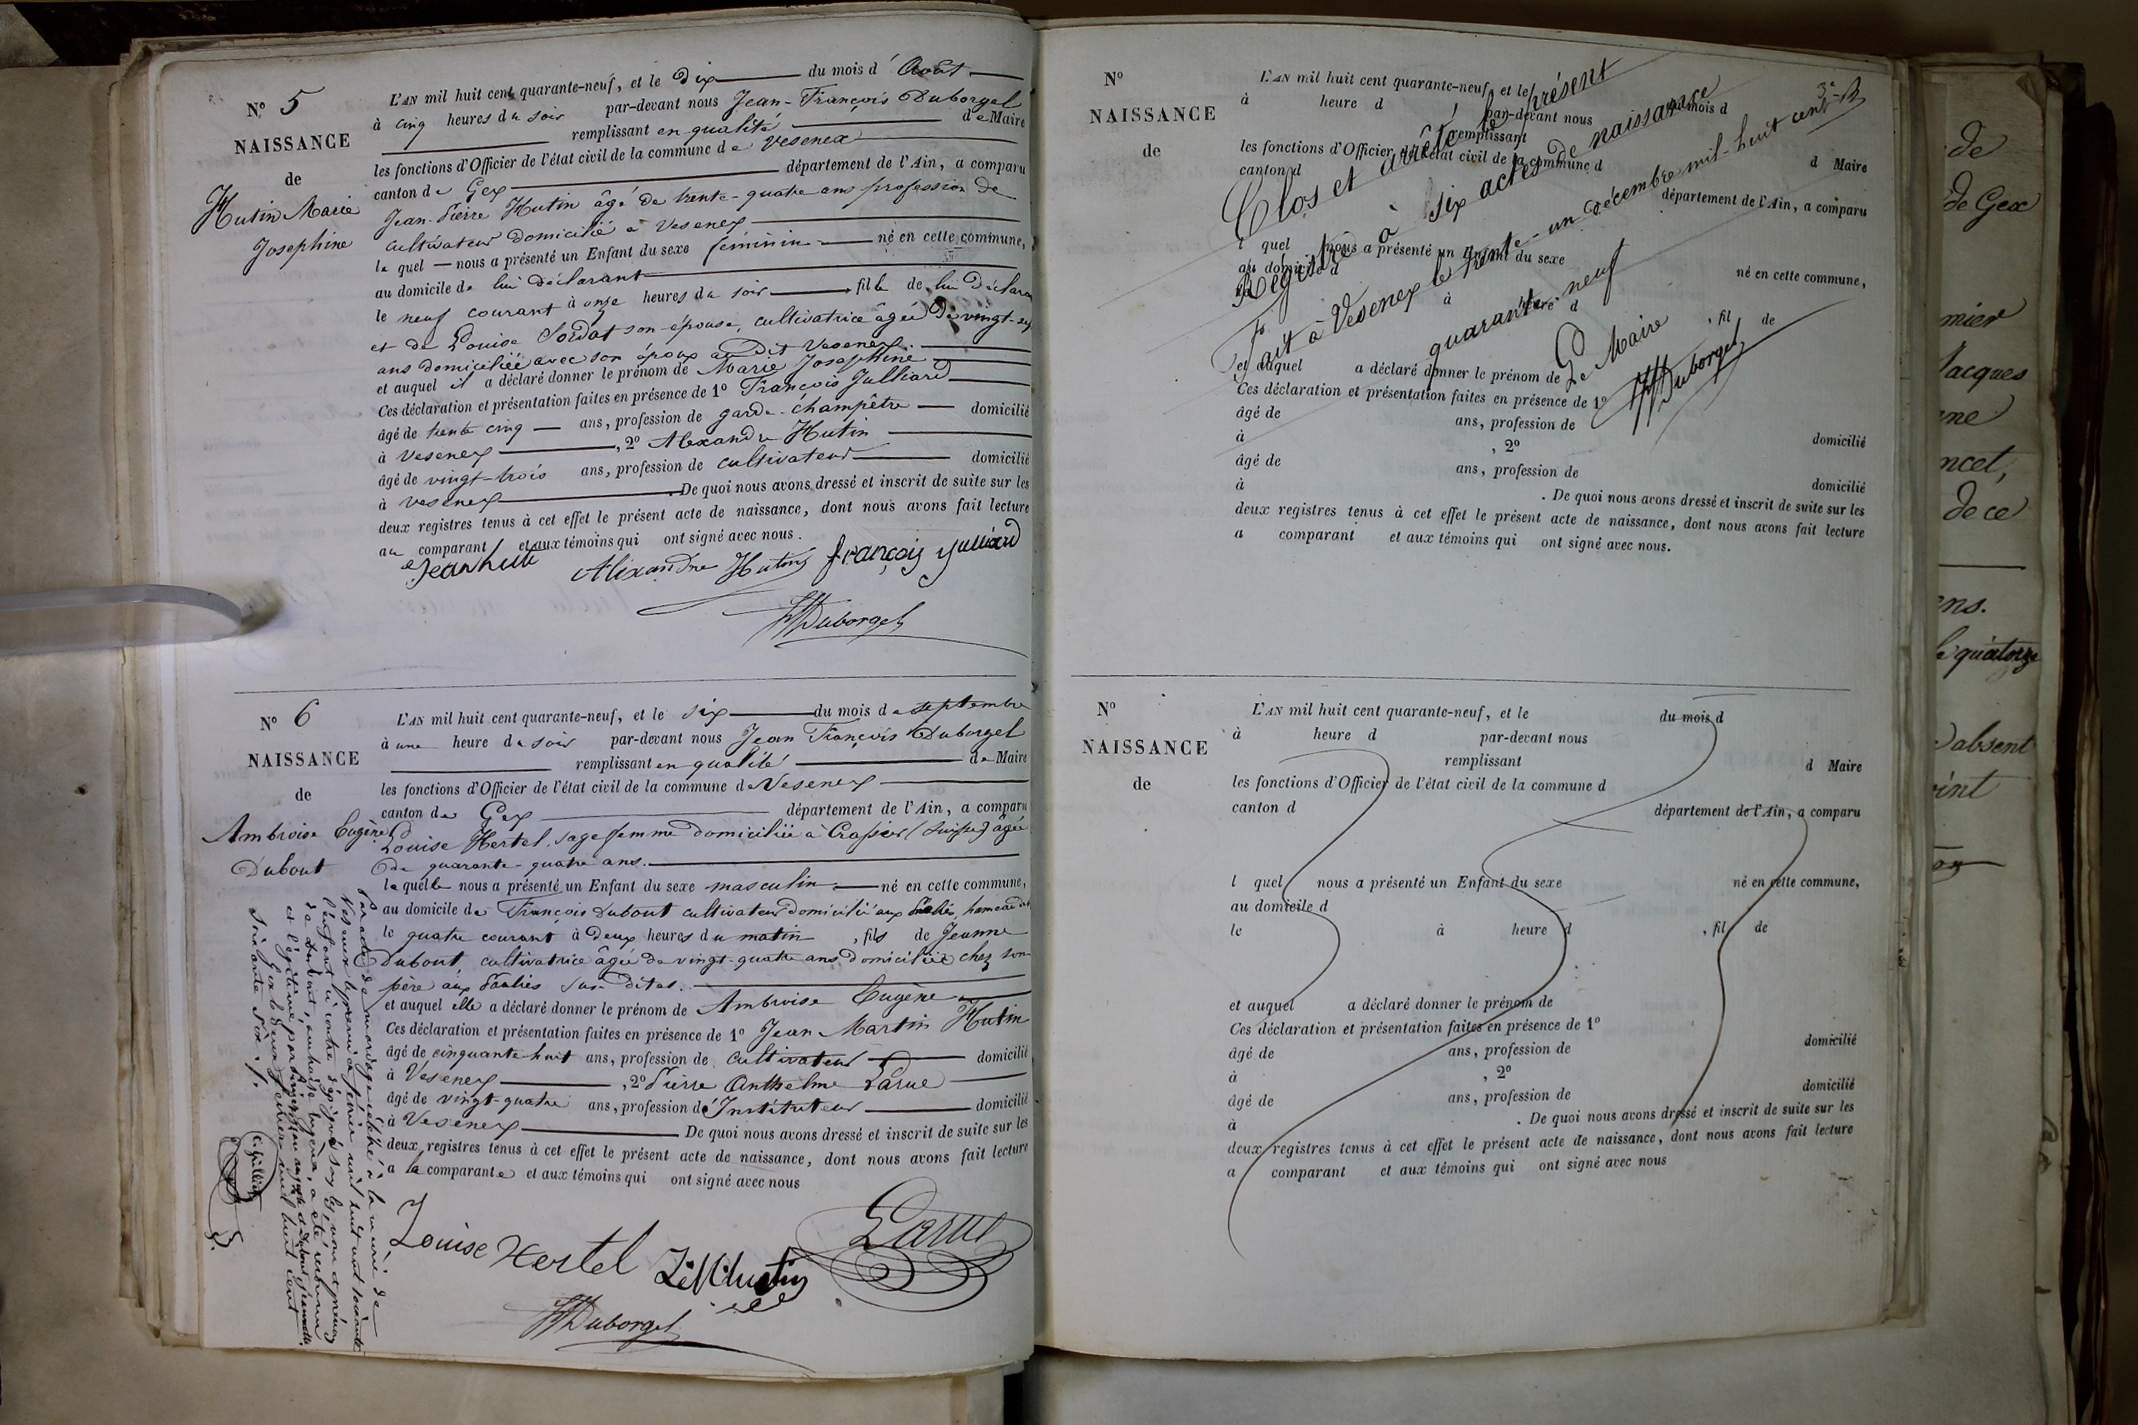 N° 5
NAISSANCE
de
Hutin Marie
Josephine
L'AN mil huit cent quarante-neuf, et le Dix du mois d' Août
à cinq heures du soir par-devant nous Jean-François Duborgel
remplissant en qualité de Maire
les fonctions d'Officier de l'état civil de la commune de Vesenex
canton de Gex département de l'Ain, a comparu
Jean-Pierre Hutin âgé de trente-quatre ans profession de
cultivateur domicilié à Vesenex
le quel nous a présenté un Enfant du sexe féminin né en cette commune,
au domicile de lui déclarant
le neuf courant à onze heures du soir fille de lui déclarant
et de Louise Sordat son épouse, cultivatrice âgée de vingt-
ans domiciliée avec son époux au dit Vesenex.
et auquel il a déclaré donner le prénom de Marie Josephine
Ces déclaration et présentation faites en présence de 1° François Julliard
âgé de trente cinq ans, profession de garde-champêtre domicilié
à Vesenex , 2° Alexandre Hutin
âgé de vingt-trois ans, profession de cultivateur domicilié
à Vesenex . De quoi nous avons dressé et inscrit de suite sur les
deux registres tenus à cet effet le présent acte de naissance, dont nous avons fait lecture
au comparant et aux témoins qui ont signé avec nous.
Jean hutin Alixandre Hutin françois julliard
Duborgel
N° 6
NAISSANCE
de
Ambroise Eugène
Dubout
L'AN mil huit cent quarante-neuf, et le six du mois de septembre
à une heure du soir par-devant nous Jean François Duborgel
remplissant en qualité de Maire
les fonctions d'Officier de l'état civil de la commune de Vesenex
canton de Gex département de l'Ain, a comparu
Louise Hertel, sage femme domiciliée à Crassier (Suisse) âgée
de quarante-quatre ans.
la quelle nous a présenté un Enfant du sexe masculin né en cette commune,
au domicile de François Dubout cultivateur domicilié aux hameau
le quatre courant à Deux heures du matin , fils de Jeanne
Dubout, cultivatrice âgée de vingt-quatre ans domiciliée chez son
père aux sus dites.
et auquel elle a déclaré donner le prénom de Ambroise Eugène
Ces déclaration et présentation faites en présence de 1° Jean Martin Hutin
âgé de cinquante huit ans, profession de cultivateur domicilié
à Vesenex , 2° Pierre Anthelme Larue
âgé de vingt-quatre ans, profession d'Instituteur domicilié
à Vesenex De quoi nous avons dressé et inscrit de suite sur les
deux registres tenus à cet effet le présent acte de naissance, dont nous avons fait lecture
a la comparante et aux témoins qui ont signé avec nous
Louise Hertel J. M. Hustin Larue
Duborgel
Par acte de mariage célébré à la mairie de
Vesenex le premier février mil huit cent soixante
l'enfant ci contre désigné sous les noms et prénoms
de Dubout, ambroise Eugène, a été reconnu
et légitimé par
soixante
3e
N°
NAISSANCE
de
L'AN mil huit cent quarante-neuf, et le du mois d
à heure d par-devant nous
remplissant d Maire
les fonctions d'Officier de l'état civil de la commune d
canton d département de l'Ain, a comparu
l quel nous a présenté un Enfant du sexe né en cette commune,
au domicile d
le à heure d , fil de
et auquel a déclaré donner le prénom de
Ces déclaration et présentation faites en présence de 1°
âgé de ans, profession de domicilié
à , 2°
âgé de ans, profession de domicilié
à . De quoi nous avons dressé et inscrit de suite sur les
deux registres tenus à cet effet le présent acte de naissance, dont nous avons fait lecture
a comparant et aux témoins qui ont signé avec nous.
Clos et arrêté le présent
Régistre à six actes de naissance
Fait à Vesenex le trente-un décembre mil-huit cent
quarante-neuf
Le Maire
Duborgel
N°
NAISSANCE
de
L'AN mil huit cent quarante-neuf, et le du mois d
à heure d par-devant nous
remplissant d Maire
les fonctions d'Officier de l'état civil de la commune d
canton d département de l'Ain, a comparu
l quel nous a présenté un Enfant du sexe né en cette commune,
au domicile d
le à heure d , fil de
et auquel a déclaré donner le prénom de
Ces déclaration et présentation faites en présence de 1°
âgé de ans, profession de domicilié
à , 2°
âgé de ans, profession de domicilié
à . De quoi nous avons dressé et inscrit de suite sur les
deux registres tenus à cet effet le présent acte de naissance, dont nous avons fait lecture
a comparant et aux témoins qui ont signé avec nous
de
de Gex
mier
Jacques
ne
ncet,
de ce
ens.
le quatorze
absent
oint